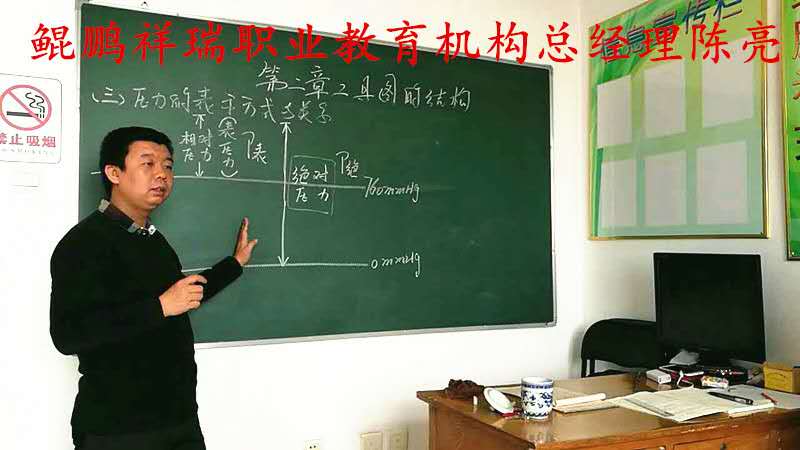 鲲鹏祥瑞职业教育机构总经理陈亮
第二章工具图的结构
(三)压力的表示方式与关系
相对压力
表压力
P表
绝对压力
P绝
760mmHg
0mmHg
禁止吸烟
NO SMOKING